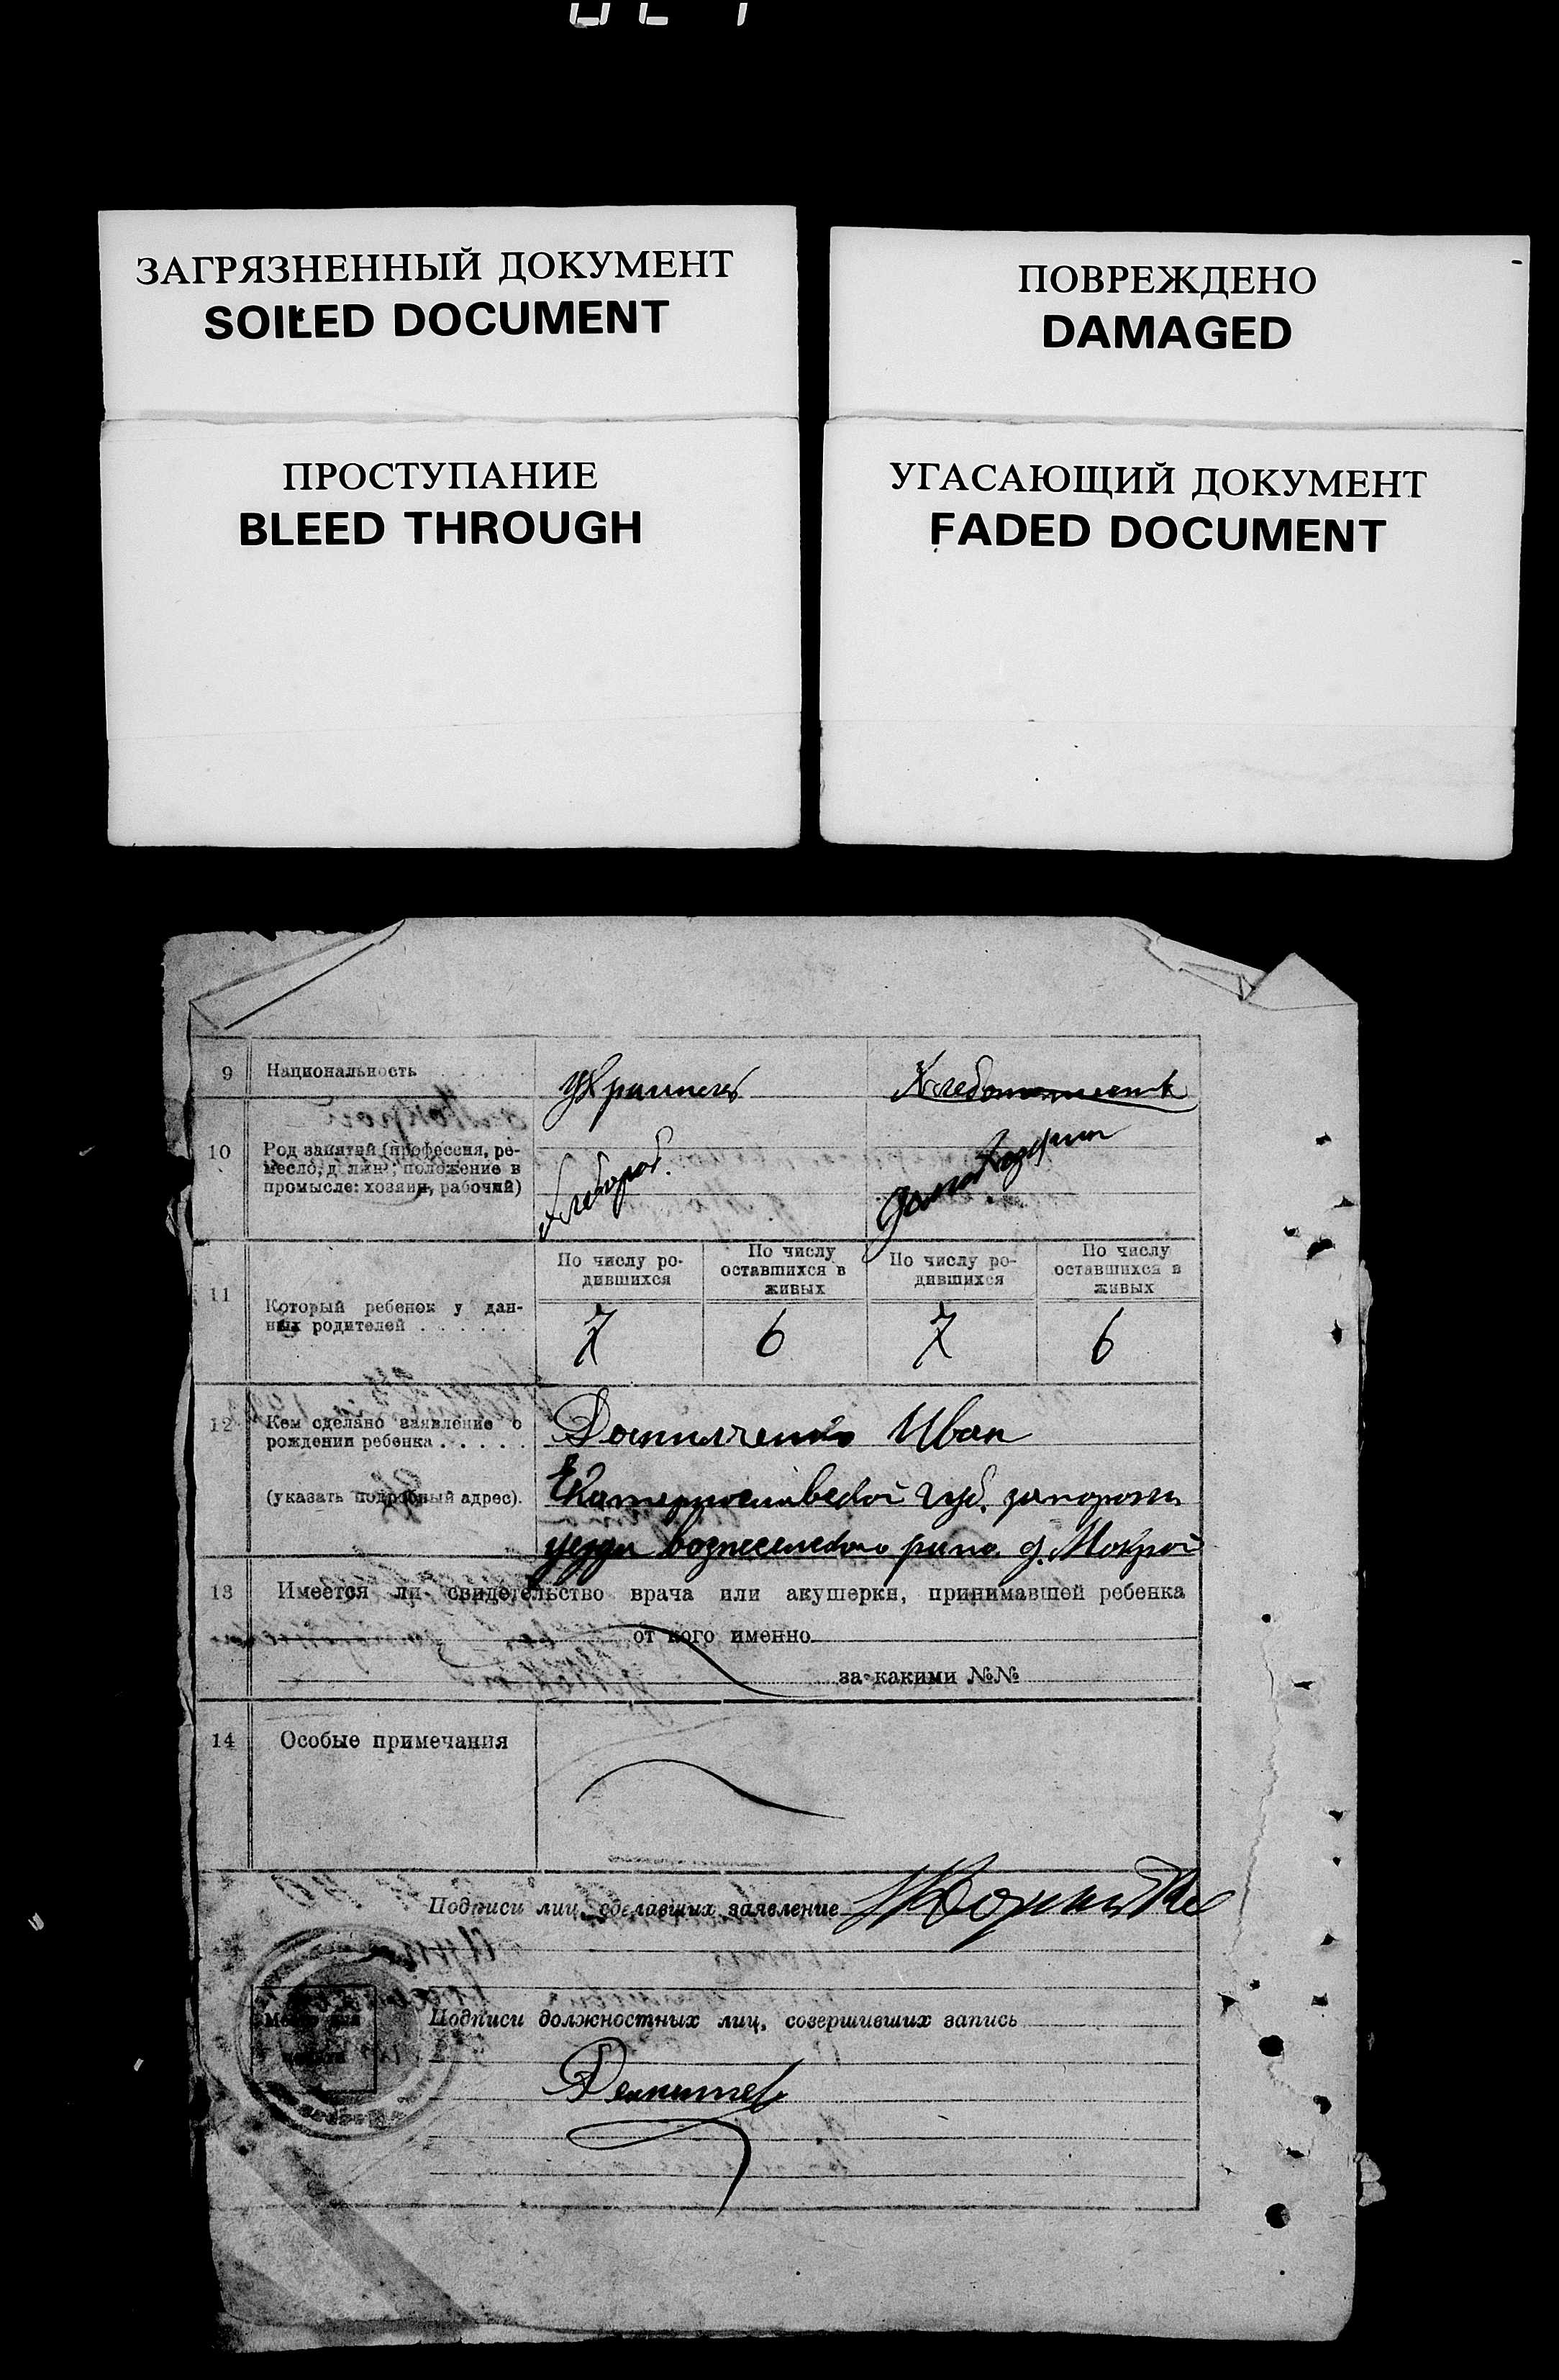 ЗАГРЯЗНЕННЫЙ ДОКУМЕНТ
SOILED DOCUMENT
ПОВРЕЖДЕНО
DAMAGED
ПРОСТУПАНИЕ
BLEED THROUGH
УГАСАЮЩИЙ ДОКУМЕНТ
FADED DOCUMENT
9 Национальность
10 Род занятий (профессия, ре-
месло, должн., положение в
промысле: хозяин, рабочий)
Хлебороб.
11 Который ребенок у дан-
ных родителей
По числу ро-
дившихся
По числу
оставшихся в
живых
По числу ро-
дившихся
По числу
оставшихся в
живых
7 6 7 6
12 Кем сделано заявление о
рождении ребенка
(указать подробный адрес).
Иван
Екатеринославской губ.
уезда вознесенского д. Мокрой
13 Имеется ли свидетельство врача или акушерки, принимавшей ребенка
от кого именно
за какими №№
14 Особые примечания
Подписи лиц, сделавших заявление
Подписи должностных лиц, совершивших запись